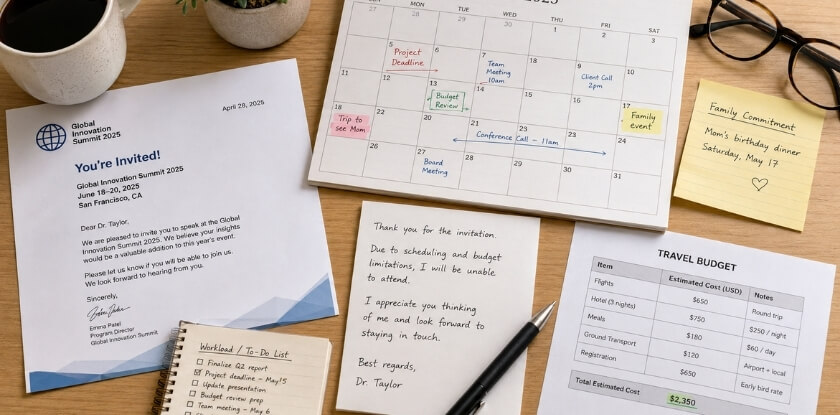 Global
Innovation
Summit 2025
April 28, 2025
You're Invited!
Global Innovation Summit 2025
June 18–20, 2025
San Francisco, CA
Dear Dr. Taylor,
We are pleased to invite you to speak at the Global
Innovation Summit 2025. We believe your insights
would be a valuable addition to this year's event.
Please let us know if you will be able to join us.
We look forward to hearing from you.
Sincerely,
Emma Patel
Program Director
Global Innovation Summit
MON TUE WED THU FRI SAT
27 28 29 30 1 2 3
5 6 7 9 10
Project
Deadline
Team
Meeting
10am
Client Call
2pm
11 13 14 17
Budget
Review
Family
event
18 22 20 21 22 23 24
Trip to
see Mom
Conference Call – 11am
26 27 28 29 30 31
Board
Meeting
Family Commitment
Mom's birthday dinner
Saturday, May 17
Thank you for the invitation.
Due to scheduling and budget
limitations, I will be unable
to attend.
I appreciate you thinking
of me and look forward to
staying in touch.
Best regards,
Dr. Taylor
TRAVEL BUDGET
Item Estimated Cost (USD) Notes
Flights $650 Round trip
Hotel (3 nights) $750 $250 / night
Meals $180 $60 / day
Ground Transport $120 Airport + local
Registration $650 Early bird rate
Total Estimated Cost $2,350
Workload / To-Do List
Finalize Q2 report
Project deadline – May 15
Update presentation
Budget review prep
Team meeting – May 6